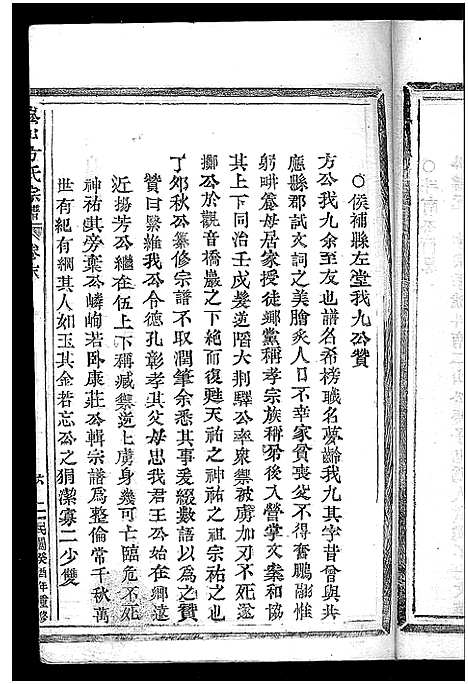 ○候補縣左堂我九公贊
方公我九余至友也譜名希榜職名夢齡我九其字昔曾與共
應縣郡試文詞之美膾炙人口不幸家貧喪父不得奮鵬翮惟
躬畊養母居家授徒鄉黨稱孝宗族稱弟後入營掌文案和協
其上下同治壬戌髮逆踞大荆驛公率衆禦被虜不死遂
擲公於觀音橋巖之下而復甦天祐之神祐之祖宗祐之也
丁卯秋公纂修宗譜不取潤筆余悉其事爰綴數語以為之贊
贊曰繄維我公令德孔彰孝其父母忠我君王公始在鄉遠
近揚芳公繼在伍上下稱臧禦逆上虜身幾可亡臨危不死
神祐其旁棄公嶙峋若卧康莊公輯宗譜為整倫常千秋萬
世有紀有綱其人如玉其金若忘公之狷潔寡二少雙
方氏宗譜
卷六
民國癸酉年重修